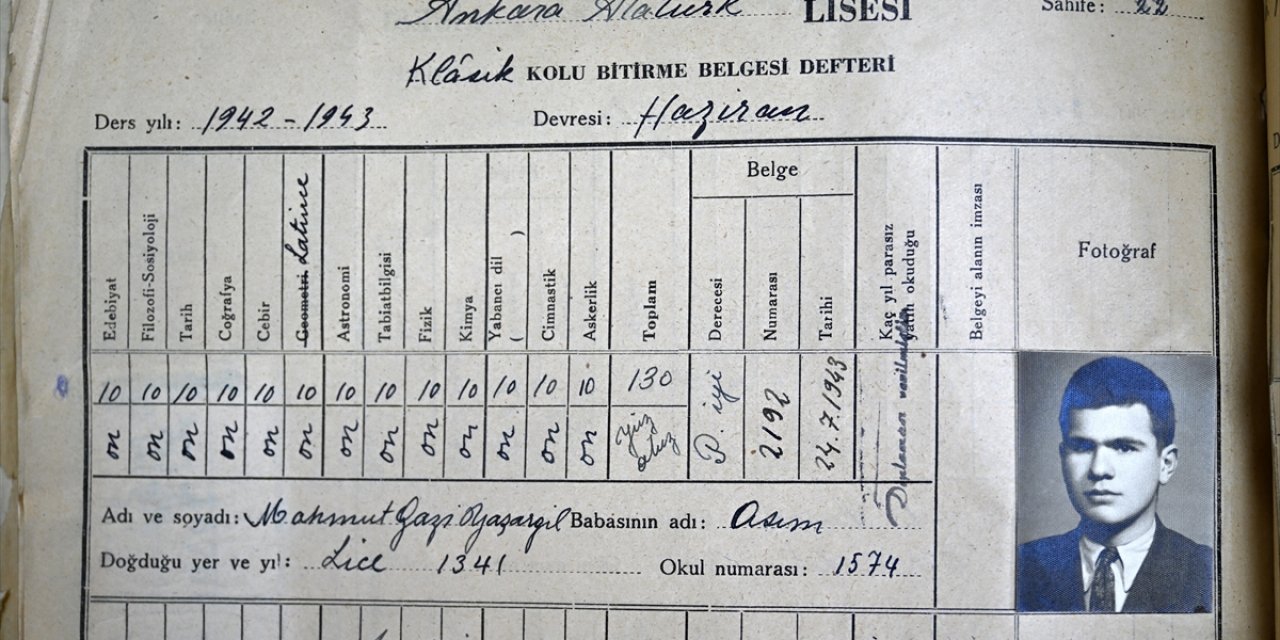 Ankara Atatürk LİSESİ Sahife: 22
Klâsik KOLU BİTİRME BELGESİ DEFTERİ
Ders yılı: 1942-1943 Devresi: Haziran
Belge
Edebiyat Filozofi-Sosiyoloji Tarih Coğrafya Cebir Geometri Latince Astronomi Tabiatbilgisi Fizik Kimya Yabancı dil ( ) Cimnastik Askerlik Toplam Derecesi Numarası Tarihi Kaç yıl parasız yatılı okuduğu Belgeyi alanın imzası Fotoğraf
10 10 10 10 10 10 10 10 10 10 10 10 10 130 P. iyi 2192 24.7.1943
on on on on on on on on on on on on on yüz otuz
Adı ve soyadı: Mahmut Gazi Yaşargil Babasının adı: Asım
Doğduğu yer ve yıl: Lice 1341 Okul numarası: 1574